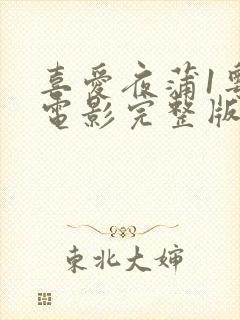 喜愛夜蒲1粵
電影完整版
東北大嬸